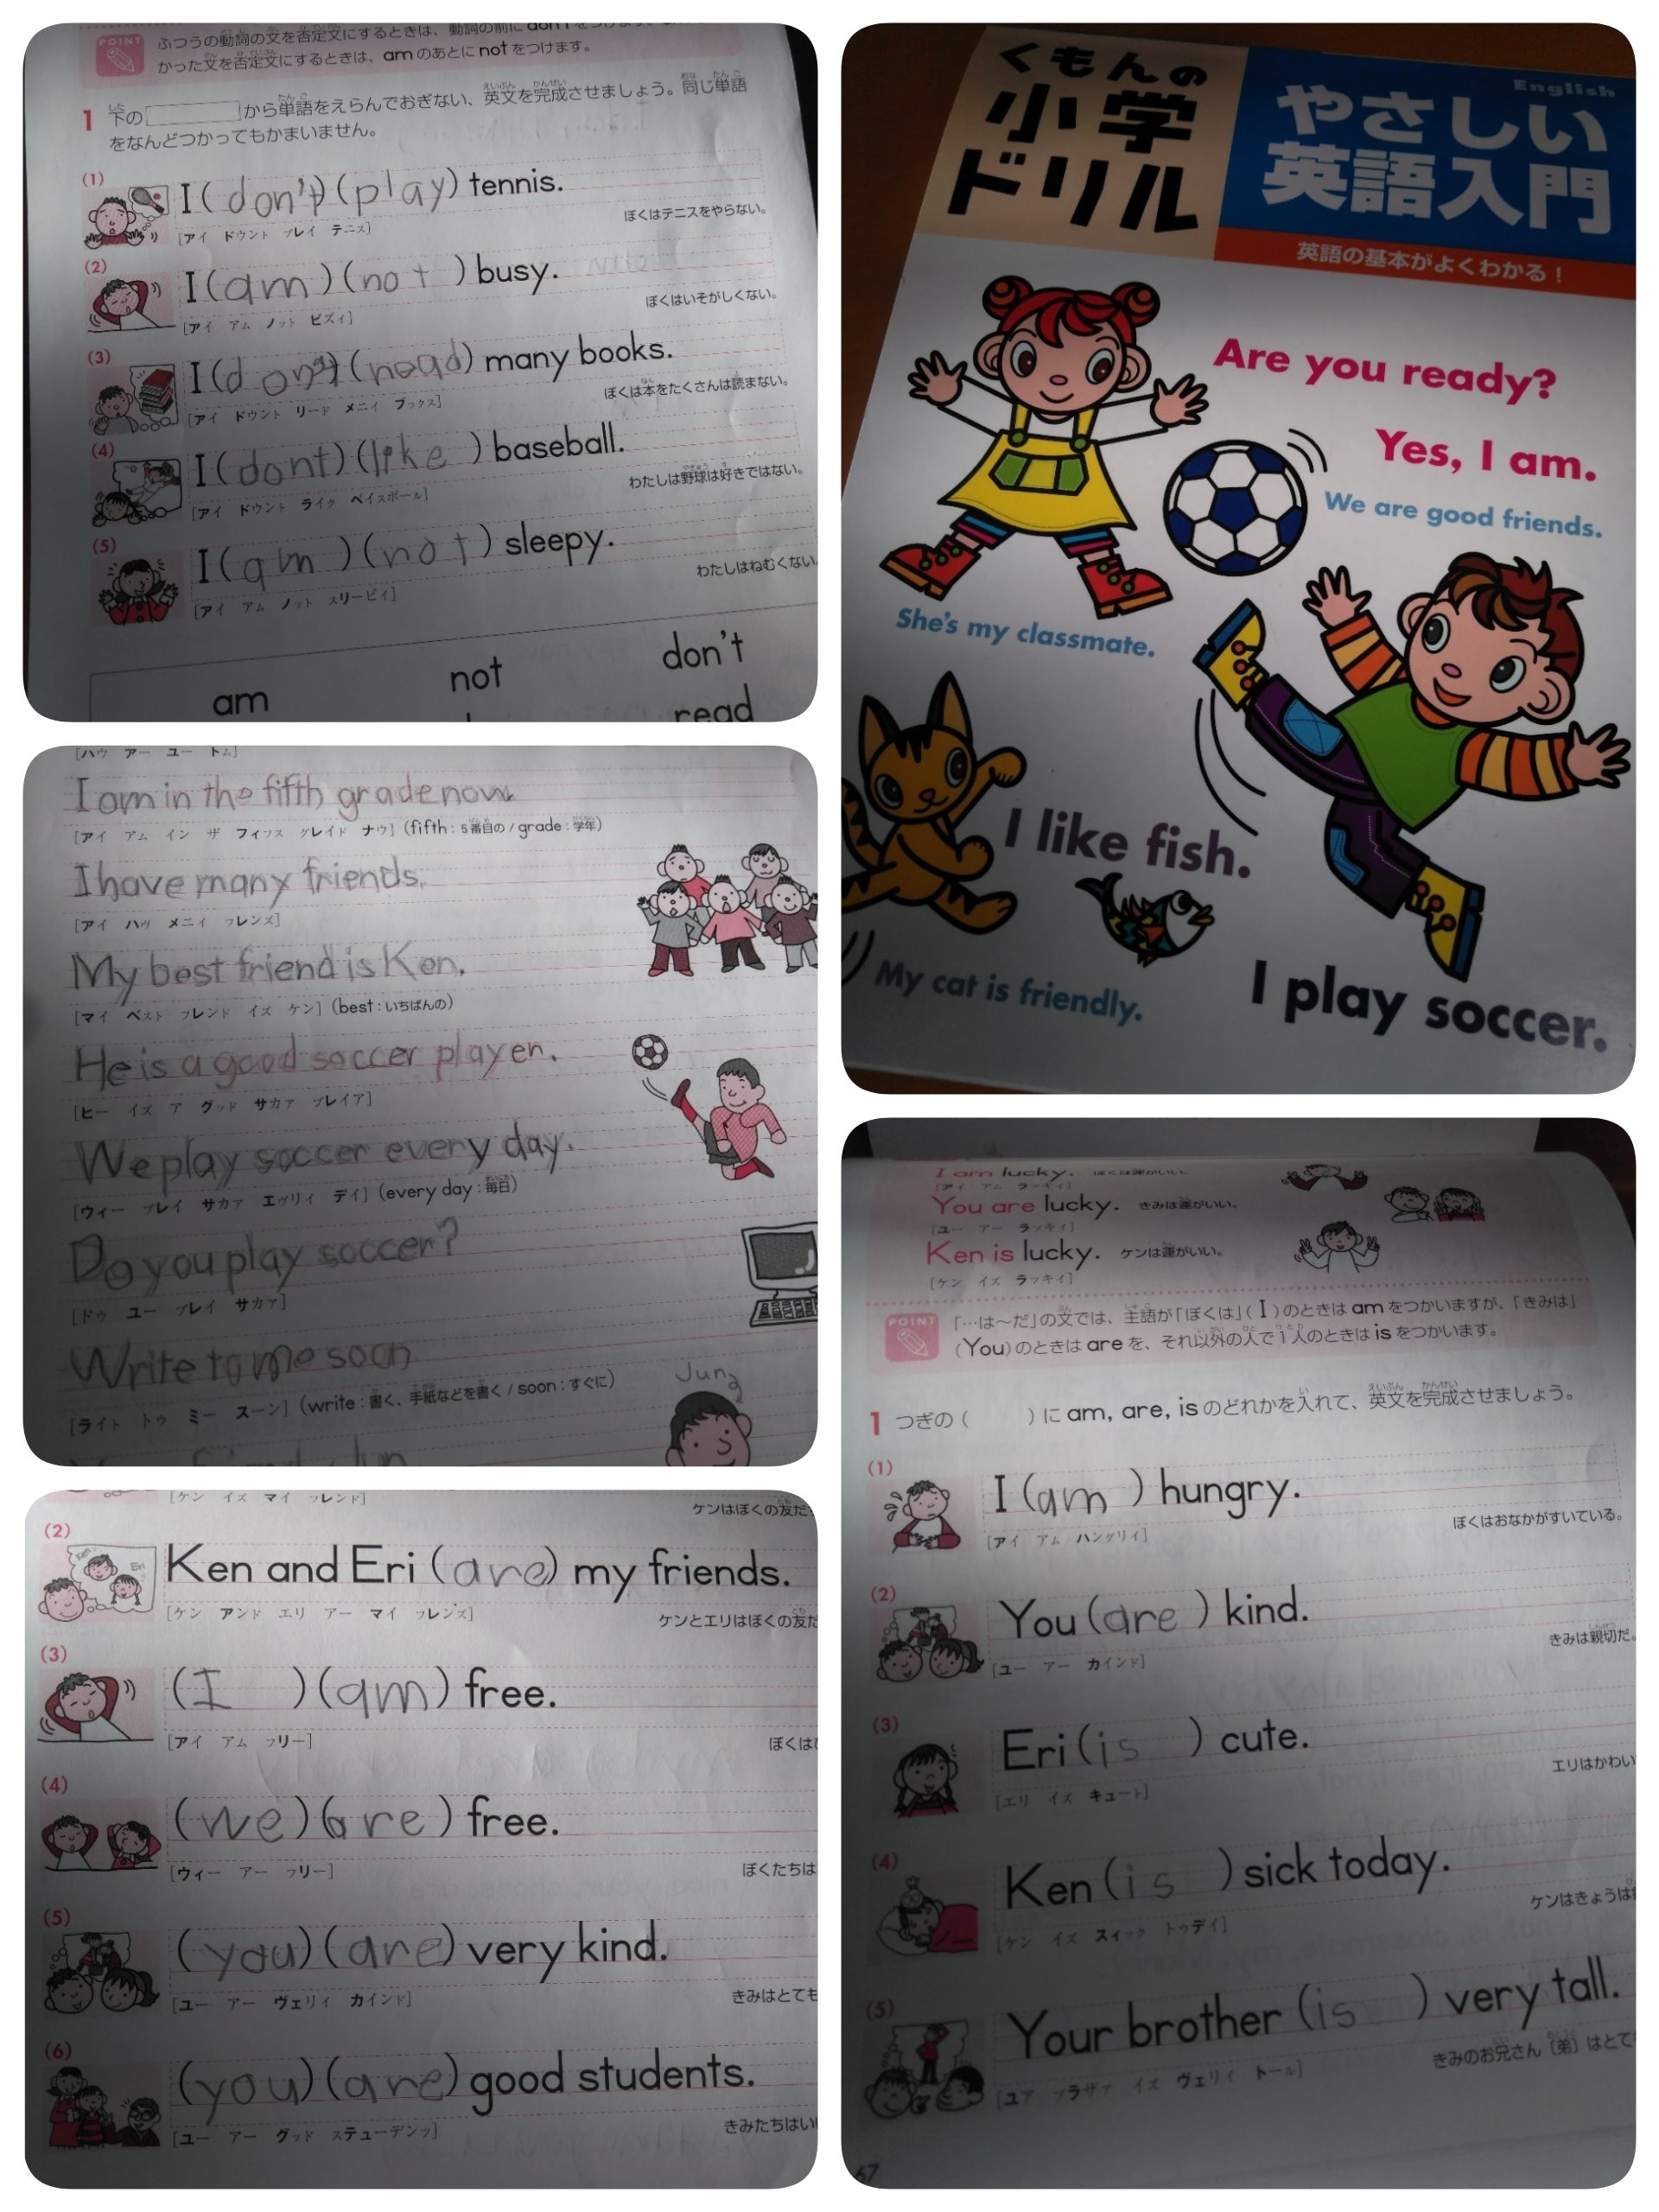 POINT
ふつうの動詞の文を否定文にするときは、動詞の前に don't をつけます。
かった文を否定文にするときは、amのあとに not をつけます。
1 下の[ ]から単語をえらんでおぎない、英文を完成させましょう。同じ単語
をなんどつかってもかまいません。
(1)
I ( don't ) ( play ) tennis.
ぼくはテニスをやらない。
[アイ ドウント プレイ テニス]
(2)
I ( am ) ( not ) busy.
ぼくはいそがしくない。
[アイ アム ノット ビズィ]
(3)
I ( don't ) ( read ) many books.
ぼくは本をたくさんは読まない。
[アイ ドウント リード メニイ ブックス]
(4)
I ( dont ) ( like ) baseball.
わたしは野球は好きではない。
[アイ ドウント ライク ベイスボール]
(5)
I ( am ) ( not ) sleepy.
わたしはねむくない。
[アイ アム ノット スリーピイ]
am not don't
read
[ハウ アー ユー トム]
I am in the fifth grade now
[アイ アム イン ザ フィフス グレイド ナウ] (fifth : 5番目の / grade : 学年)
I have many friends.
[アイ ハヴ メニイ フレンズ]
My best friend is Ken.
[マイ ベスト フレンド イズ ケン] (best : いちばんの)
He is a good soccer player.
[ヒー イズ ア グッド サカァ プレイア]
We play soccer every day.
[ウィー プレイ サカァ エヴリィ デイ] (every day : 毎日)
Do you play soccer?
[ドゥ ユー プレイ サカァ]
Write to me soon
[ライト トゥ ミー スーン] (write : 書く、手紙などを書く / soon : すぐに)
[ケン イズ マイ フレンド]
ケンはぼくの友だ
(2)
Ken and Eri ( are ) my friends.
[ケン アンド エリ アー マイ フレンズ]
ケンとエリはぼくの友だ
(3)
( I ) ( am ) free.
[アイ アム フリー]
ぼくは
(4)
( we ) ( are ) free.
[ウィー アー フリー]
ぼくたちは
(5)
( you ) ( are ) very kind.
[ユー アー ヴェリィ カインド]
きみはとても
(6)
( you ) ( are ) good students.
[ユー アー グッド ステューデンツ]
きみたちはい
くもんの
小学
ドリル
English
やさしい
英語入門
英語の基本がよくわかる！
Are you ready?
Yes, I am.
We are good friends.
She's my classmate.
I like fish.
My cat is friendly.
I play soccer.
I am lucky. ぼくは運がいい。
[アイ アム ラッキイ]
You are lucky. きみは運がいい。
[ユー アー ラッキイ]
Ken is lucky. ケンは運がいい。
[ケン イズ ラッキイ]
POINT
「…は〜だ」の文では、主語が「ぼくは」( I )のときは am をつかいますが、「きみは」
(You)のときは are を、それ以外の人で1人のときは is をつかいます。
1 つぎの ( ) に am, are, is のどれかを入れて、英文を完成させましょう。
(1)
I ( am ) hungry.
[アイ アム ハングリイ]
ぼくはおなかがすいている。
(2)
You ( are ) kind.
[ユー アー カインド]
きみは親切だ。
(3)
Eri ( is ) cute.
[エリ イズ キュート]
エリはかわい
(4)
Ken ( is ) sick today.
[ケン イズ スィック トゥデイ]
ケンはきょうは
(5)
Your brother ( is ) very tall.
[ユア ブラザァ イズ ヴェリィ トール]
きみのお兄さん〔弟〕はとて
67